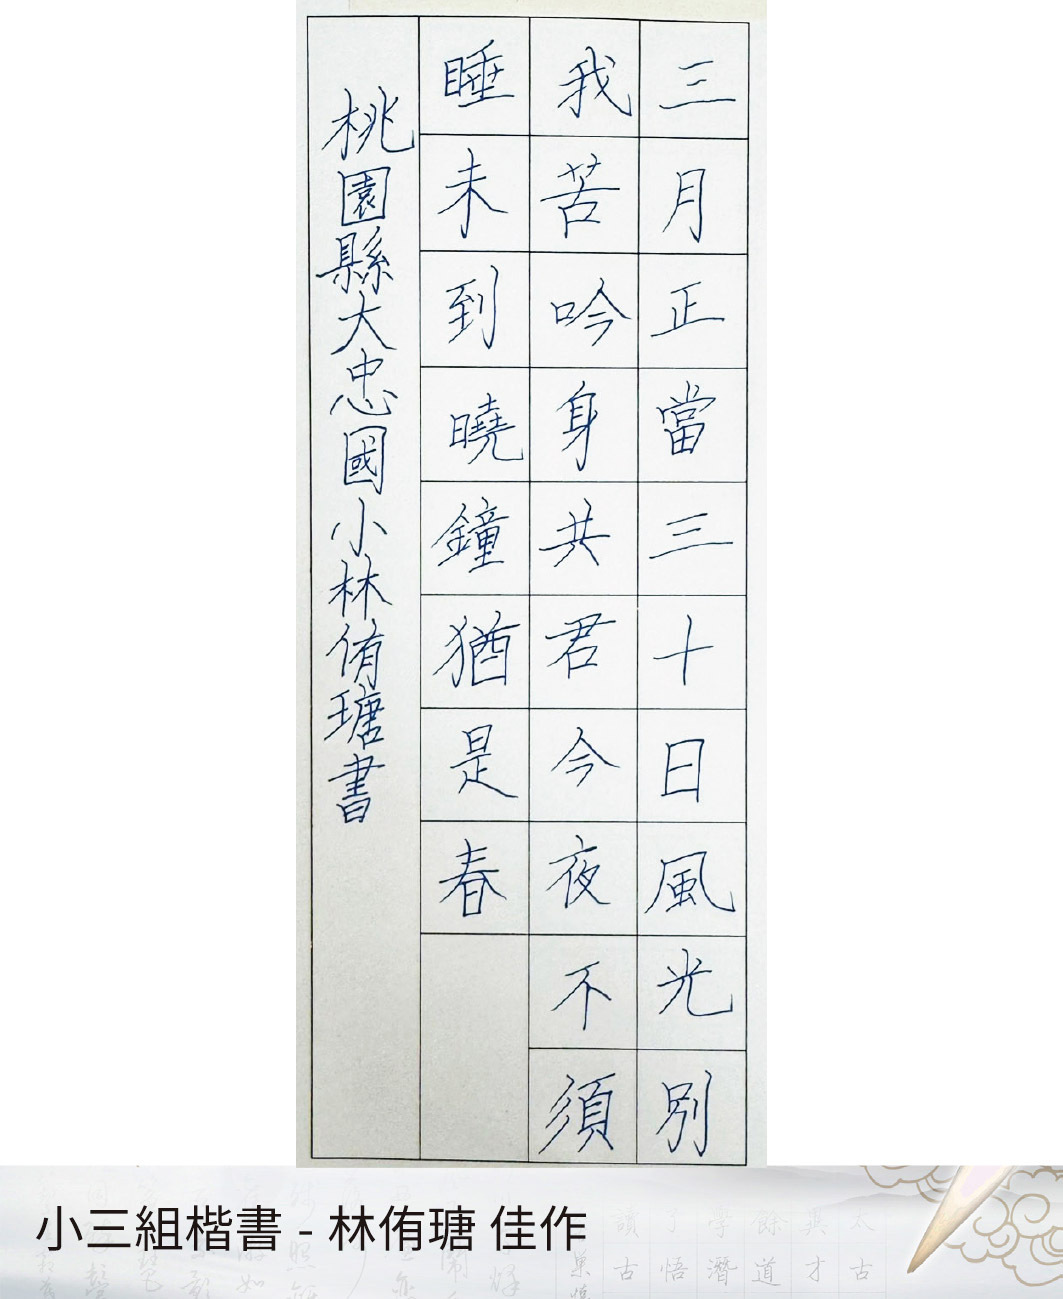 三月正當三十日風光別
我苦吟身共君今夜不須
睡未到曉鐘猶是春
桃園縣大忠國小林侑瑭書
小三組楷書 - 林侑瑭 佳作